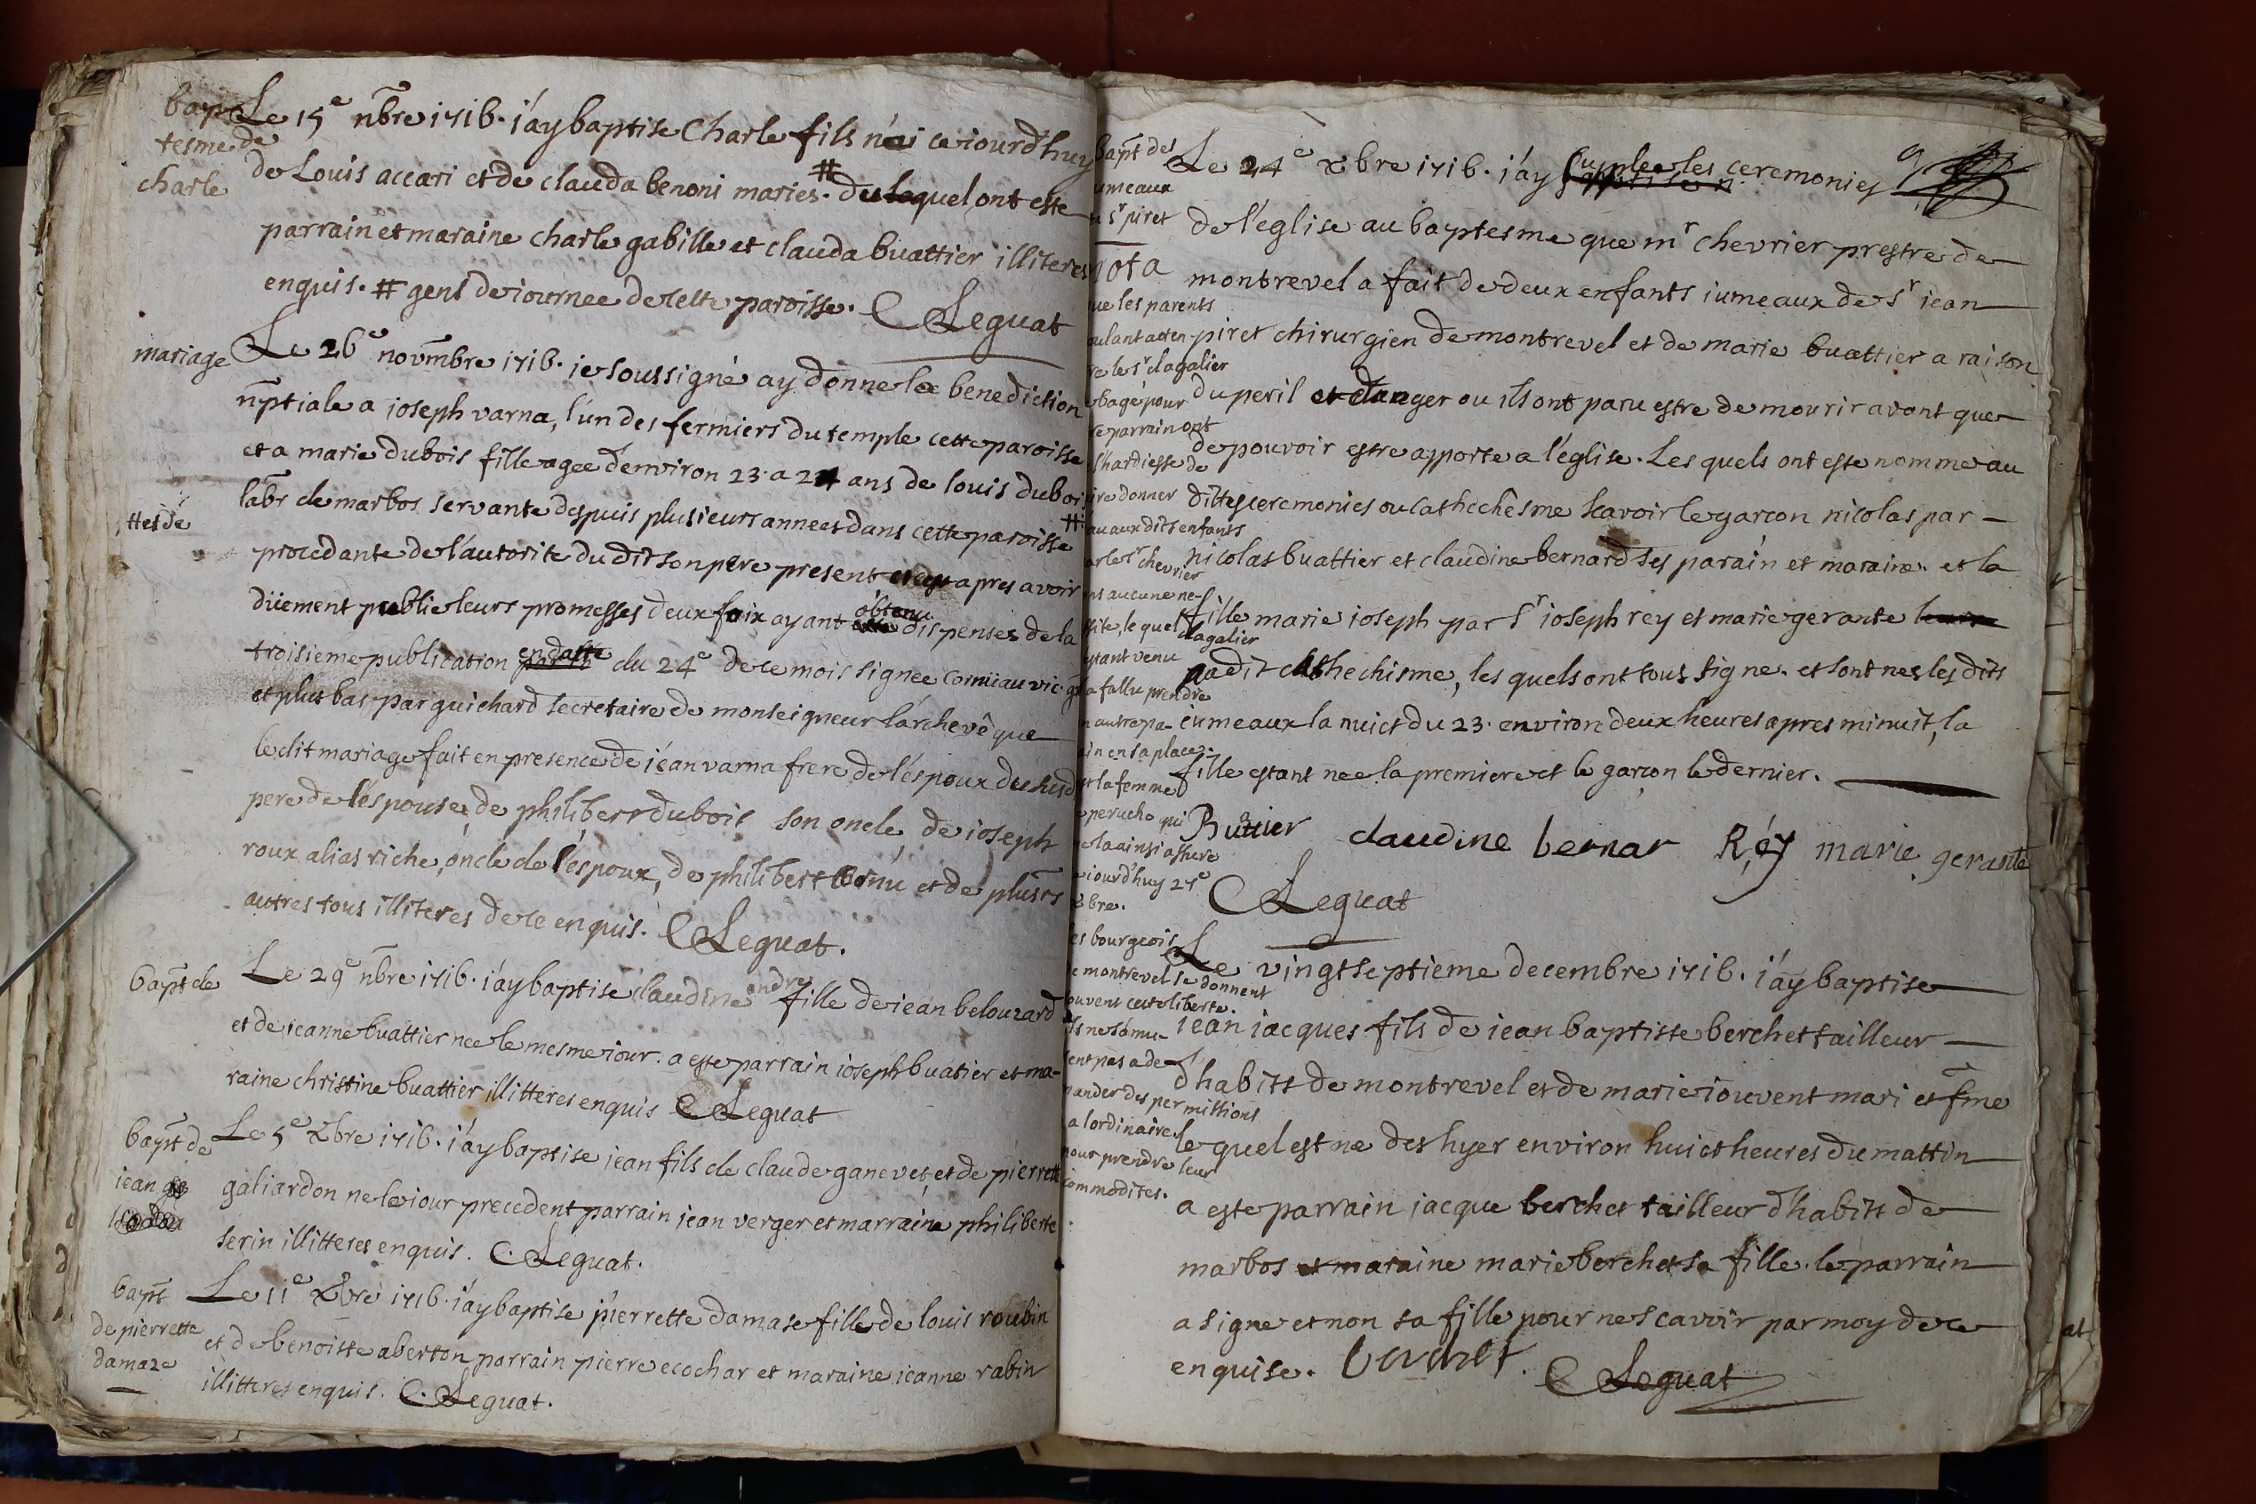 bap
tesme de
charle
Le 15e nbre 1716. j'ay baptise Charle fils néi ce iourd'huy
de Louis accari et de clauda benoni maries. # du laquel ont este
parrain et maraine charle gabille et clauda buattier illiteres
enquis. # gens de iournee de cette paroisse. C Leguat
mariage
Le 26e novmbre 1716. ie soussigné ay donne la benediction
nptiale a ioseph varna, l'un des fermiers du temple cette paroisse
et a marie dubois fille agee d'environ 23. a 24 ans de louis dubois
labr de marbos servante despuis plusieurs annees dans cette paroisse #
# et de
procedante de l'autorite du dit son pere present et apres avoir
düement publie leurs promesses deux foix ayant obtenu dispenses de la
troisieme publication en datte du 24e de ce mois signee Cornuau vic. gn
et plus bas par guichard secretaire de monseigneur l'archevêque
le dit mariage fait en presence de iéan varna frere de l'éspoux du susd
pere de l'éspouse de philibert dubois son oncle de ioseph
roux alias riche, óncle de l'éspoux, de philibert Cornú et de plusrs
autres tous illiteres de ce enquis. C Leguat.
bapt de
Le 29e nbre 1716. i'ay baptise claudine andre fille de iean belouzard
et de ieanne buattier nee le mesme iour. a este parrain ioseph buatier et ma-
raine christine buattier illitteres enquis C Leguat
bapt de
iean
Le 5e xbre 1716. i'ay baptise iean fils de claude ganevet et de pierrette
galiardon ne le iour precedent parrain jean verger et marraine philiberte
serin illitteres enquis. C. Leguat.
bapt
de pierrette
damaze
Le 11e xbre 1716. i'ay baptise pierrette damase fille de louis roubin
et de benoitte aberton parrain pierre ecochar et maraine ieanne rabin
illitteres enquis. C. Leguat.
bapt des
umeaux
sr piret
nota
ue les parents
oulant aten-
re le sr clagalier
bagé pour
re parrain ont
l'hardiesse de
ire donner
au aux dits enfants
ar le sr chevrier
ns aucune ne-
ssite, le quel
clagalier
estant venu
a fallu prendre
n autre pa-
in en sa place.
st la femme
perucho qui
cela ainsi assure
iourd'huy 25e
xbre.
es bourgeois
e montrevel se donnent
ouvent cette liberte.
ls ne s'amu-
sent pas a de-
mander des permissions
a lordinaire
pour prendre leur
commodites.
9
Le 24e xbre 1716. i'ay suplee les ceremonies
de l'églisse au baptesme que mr chevrier prestre de
montrevel a fait de deux enfants iumeaux de sr iean
piret chirurgien de montrevel et de marie buattier a raison
du peril et danger ou ils ont paru estre de mourir avant que
de pouvoir estre apporte a l'église. Les quels ont este nomme au
dittes ceremonies ou cathechêsme scavoir le garçon nicolas par
nicolas buattier et claudine bernard ses parain et maraine et la
fille marie ioseph par sr ioseph rey et marie gerante
au dit cathechisme, les quels ont tous signe. et sont nes les dits
iumeaux la nuict du 23. environ deux heures apres minuit, la
fille estant nee la premiere et le garçon le dernier.
Buttier claudine bernar Réy marie gerante
C Leguat
Le vingt septieme decembre 1716. i'ay baptise
iean iacques fils de iean baptiste berchet tailleur
d'habits de montrevel et de marie iouvent mari et fme
le quel est ne des hyer environ huict heures du mattin
a este parrain jacque berchet tailleur d'habits de
marbos et maraine marie berchet sa fille. le parrain
a signe et non sa fille pour ne scavoir par moy de ce
enquise. berchet. C Leguat